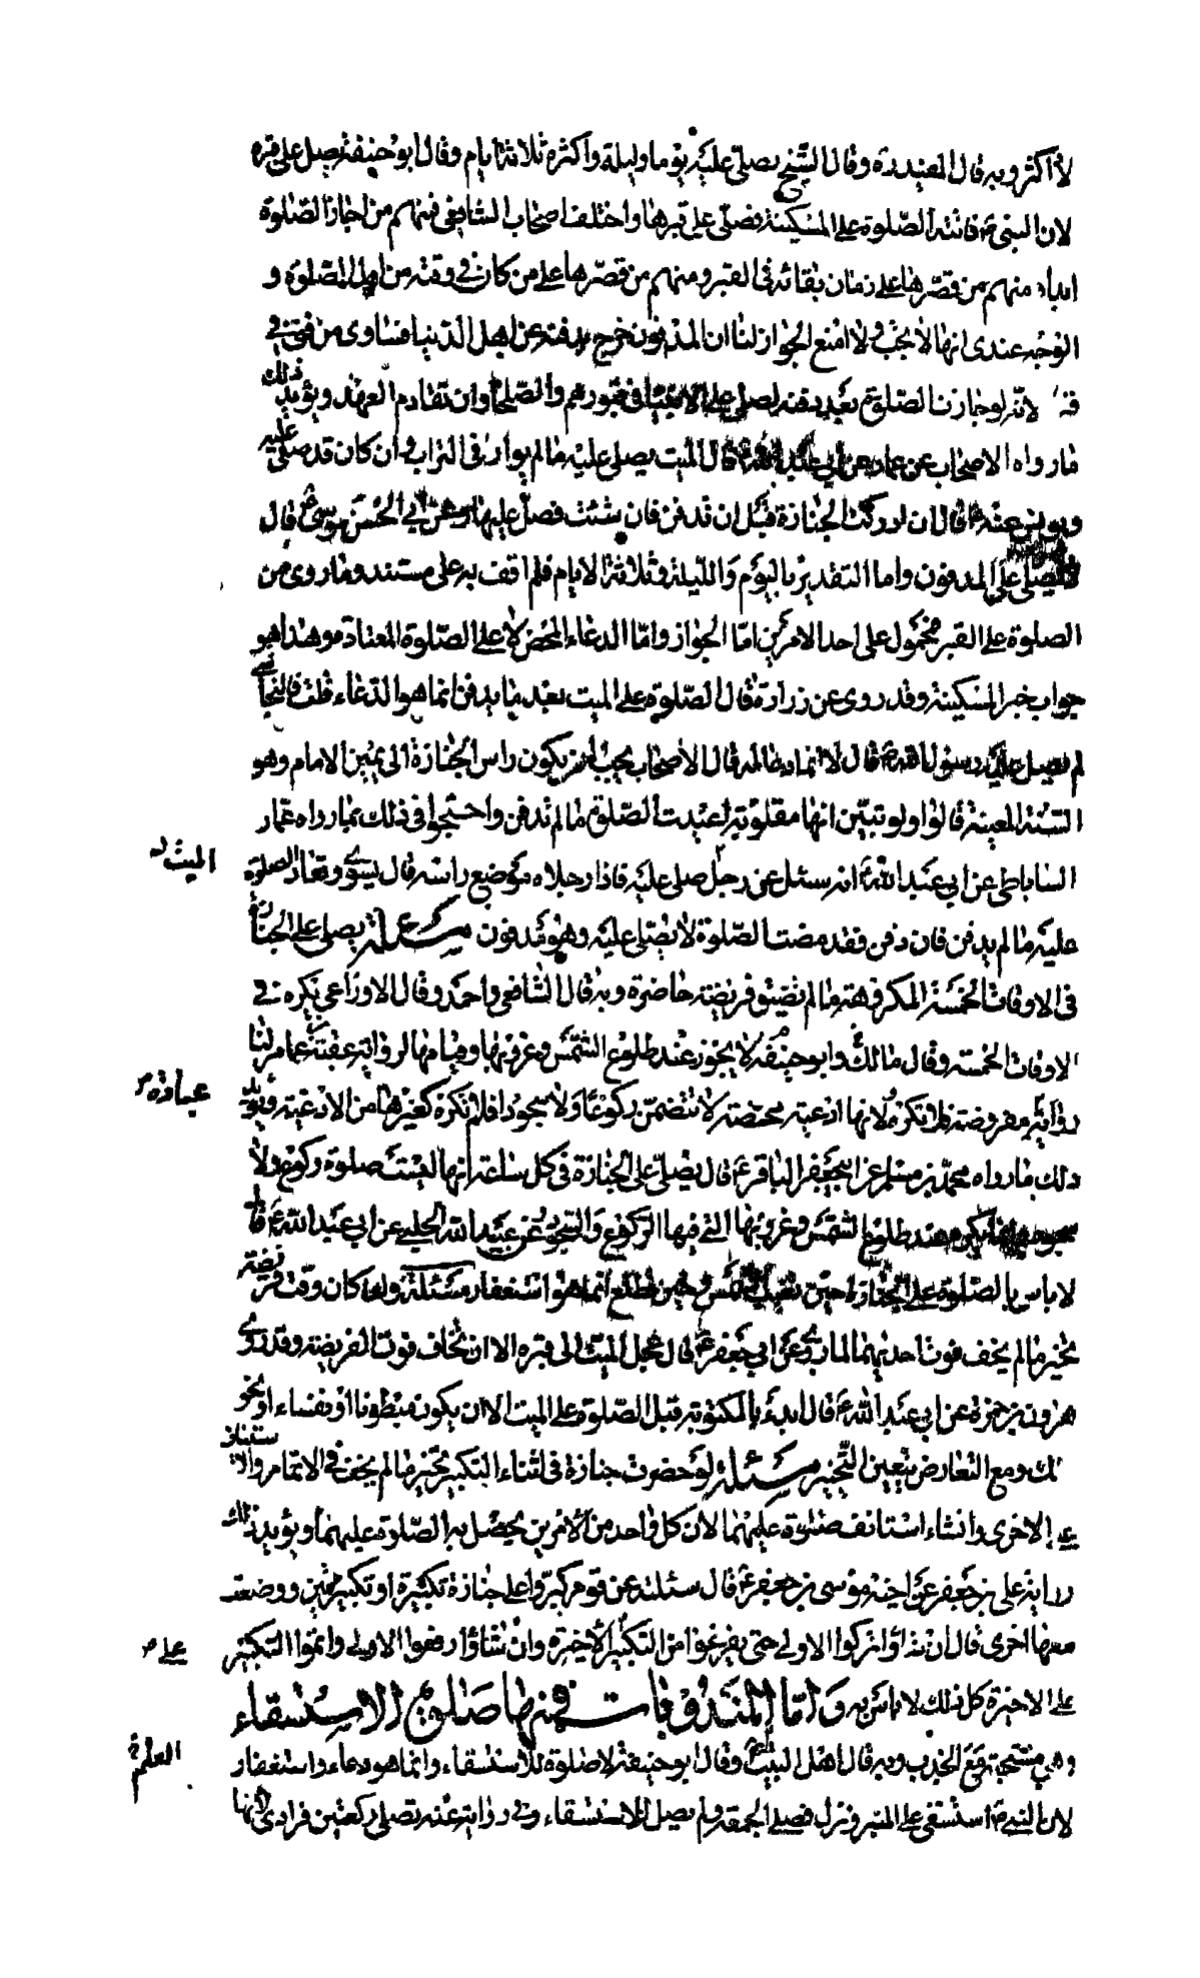 لا أكثر وبه قال المفيد ره وقال الشيخ يصلى عليه يوما وليلة واكثره ثلاثة ايام وقال ابو حنيفة يصلى على قبره
لان النبى ص فاتته الصلوة على المسكينة فصلى على قبرها واختلف اصحاب الشافعى فمنهم من اجاز الصلوة
ابدا ومنهم من قصرها على زمان بقائه فى القبر ومنهم من قصرها على من كان فى وقته من اهل الصلوة و
الوجه عندى انها لا يجب ولا امنع الجواز لنا ان المدفون خرج بدفنه عن اهل الدنيا فساوى من فنى فى
قبره لانه لو جازت الصلوة بعد دفنه لصلى على الانبياء فى قبورهم والصلحاء وان تقادم العهد ويؤيد ذلك
ما رواه الاصحاب عن عمار عن ابى عبد الله ع قال الميت يصلى عليه ما لم يوار فى التراب وان كان قد صلى عليه
و عنه ع قال ان ادركت الجنازة قبل ان تدفن فان شئت فصل عليها وعن ابى الحسن موسى ع قال
لا يصلى على المدفون واما التقدير باليوم والليلة وثلاثة الايام فلم اقف به على مستند وما روى من
الصلوة على القبر محمول على احد الامرين اما الجواز واما الدعاء المحض لا على الصلوة المعتادة وهذا هو
جواب خبر المسكينة وقد روى عن زرارة قال الصلوة على الميت بعد ما يدفن انما هو الدعاء قلت فالنجاشى
لم يصل عليه رسول الله ص قال لا انما دعا له قال الاصحاب يجب ان يكون راس الجنازة الى يمين الامام وهو
السنة المعينة قالوا ولو تبين انها مقلوبة اعيدت الصلوة ما لم تدفن واحتجوا فى ذلك بما رواه عمار
الساباطى عن ابى عبد الله ع انه سئل عن رجل صلى عليه فاذا رجلاه موضع راسه قال يسوى وتعاد الصلوة
الميت
عليه ما لم يدفن فان دفن فقد مضت الصلوة لا يصلى عليه وهو مدفون مسئلة يصلى على الجنازة
فى الاوقات الخمسة المكروهة ما لم تضيق فريضة حاضرة وبه قال الشافعى واحمد وقال الاوزاعى يكره فى
الاوقات الخمسة وقال مالك وابو حنيفة لا يجوز عند طلوع الشمس وغروبها وقيامها لرواية عقبة بن عامر لنا
عبادة
مفروضة فلا تكره لانها ادعية محضة لا تتضمن ركوعا ولا سجودا فلا تكره كغيرها من الادعية ويؤيد
ذلك ما رواه محمد بن مسلم عن ابى جعفر الباقر ع قال يصلى على الجنازة فى كل ساعة انها ليست صلوة ركوع ولا
سجود وانما يكره عند طلوع الشمس وغروبها التى فيها الركوع والسجود وعن عبيد الله الحلبى عن ابى عبد الله ع قال
لا باس بالصلوة على الجنازة حين تغيب الشمس وحين تطلع انما هو استغفار مسئلة ولو كان وقت فريضة
تخير ما لم يخف فوت احديهما لما روى عن ابى جعفر ع قال عجل الميت الى قبره الا ان تخاف فوت الفريضة وقد روى
هرون بن حمزة عن ابى عبد الله ع قال ابدء بالمكتوبة قبل الصلوة على الميت الا ان يكون مبطونا او نفساء او نحو
ذلك ومع التعارض يتعين التخيير مسئلة لو حضرت جنازة فى اثناء التكبير تخير ما لم يخف فى الاتمام والاستيناف
على الاخرى وان شاء استانف صلوة عليهما لان كل واحد من الامرين يحصل به الصلوة عليهما ويؤيد ذلك
رواية على بن جعفر عن اخيه موسى بن جعفر ع قال سئلته عن قوم كبروا على جنازة تكبيرة او تكبيرتين ووضعت
معها اخرى قال ان شاؤا تركوا الاولى حتى يفرغوا من التكبير الاخيرة وان شاؤا رفعوا الاولى واتموا التكبير
على
على الاخيرة كل ذلك لا باس به واما المندوبات فمنها صلوة الاستسقاء
وهى مستحبة مع الجدب وبه قال اهل العلم وقال ابو حنيفة لا صلوة للاستسقاء وانما هو دعاء واستغفار
العلم
لان النبى ص استسقى على المنبر ونزل فصلى الجمعة ولم يصل للاستسقاء وفى رواية عنه تصلى ركعتين فرادى لانها